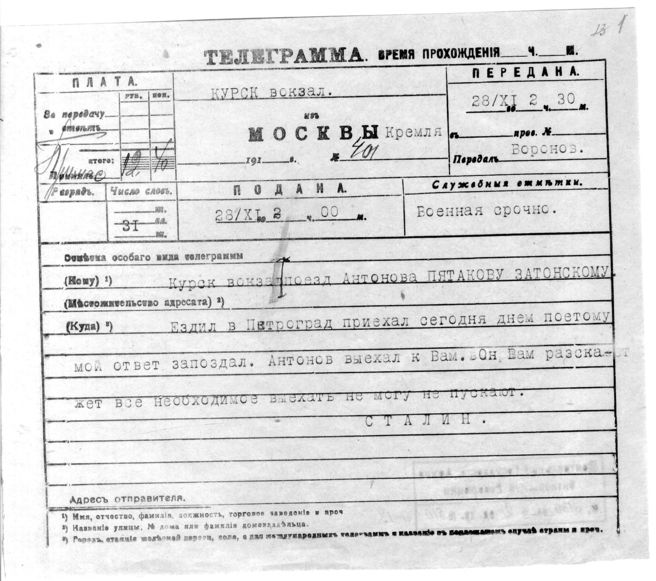 13 1
ТЕЛЕГРАММА. ВРЕМЯ ПРОХОЖДЕНІЯ Ч. М.
ПЛАТА.
РУБ. КОП.
За передачу
и отвѣтъ
ИТОГО: 12, 40
Разрядъ. Число словъ.
31
КУРСК вокзал.
изъ
МОСКВЫ Кремля
191 г. № 401
ПЕРЕДАНА.
28/XI 2 30
во ч. м.
въ пров. №
Передалъ Воронов.
ПОДАНА.
28/XI во 2 ч. 00 м.
Служебныя отмѣтки.
Военная срочно.
Отмѣтка особаго вида телеграммы
(Кому) ¹) Курск вокзал поезд Антонова ПЯТАКОВУ ЗАТОНСКОМУ.
(Мѣстожительство адресата) ²)
(Куда) ³) Ездил в Петроград приехал сегодня днем поетому
мой ответ запоздал. Антонов выехал к Вам. Он Вам расска
жет все необходимое выехать не могу не пускают.
СТАЛИН.
Адресъ отправителя.
¹) Имя, отчество, фамилія, должность, торговое заведеніе и проч
²) Названіе улицы, № дома или фамилія домовладѣльца.
³) Городъ, станція желѣзной дороги, село, а для международныхъ телеграммъ и названіе въ подлежащемъ случаѣ страны и проч.